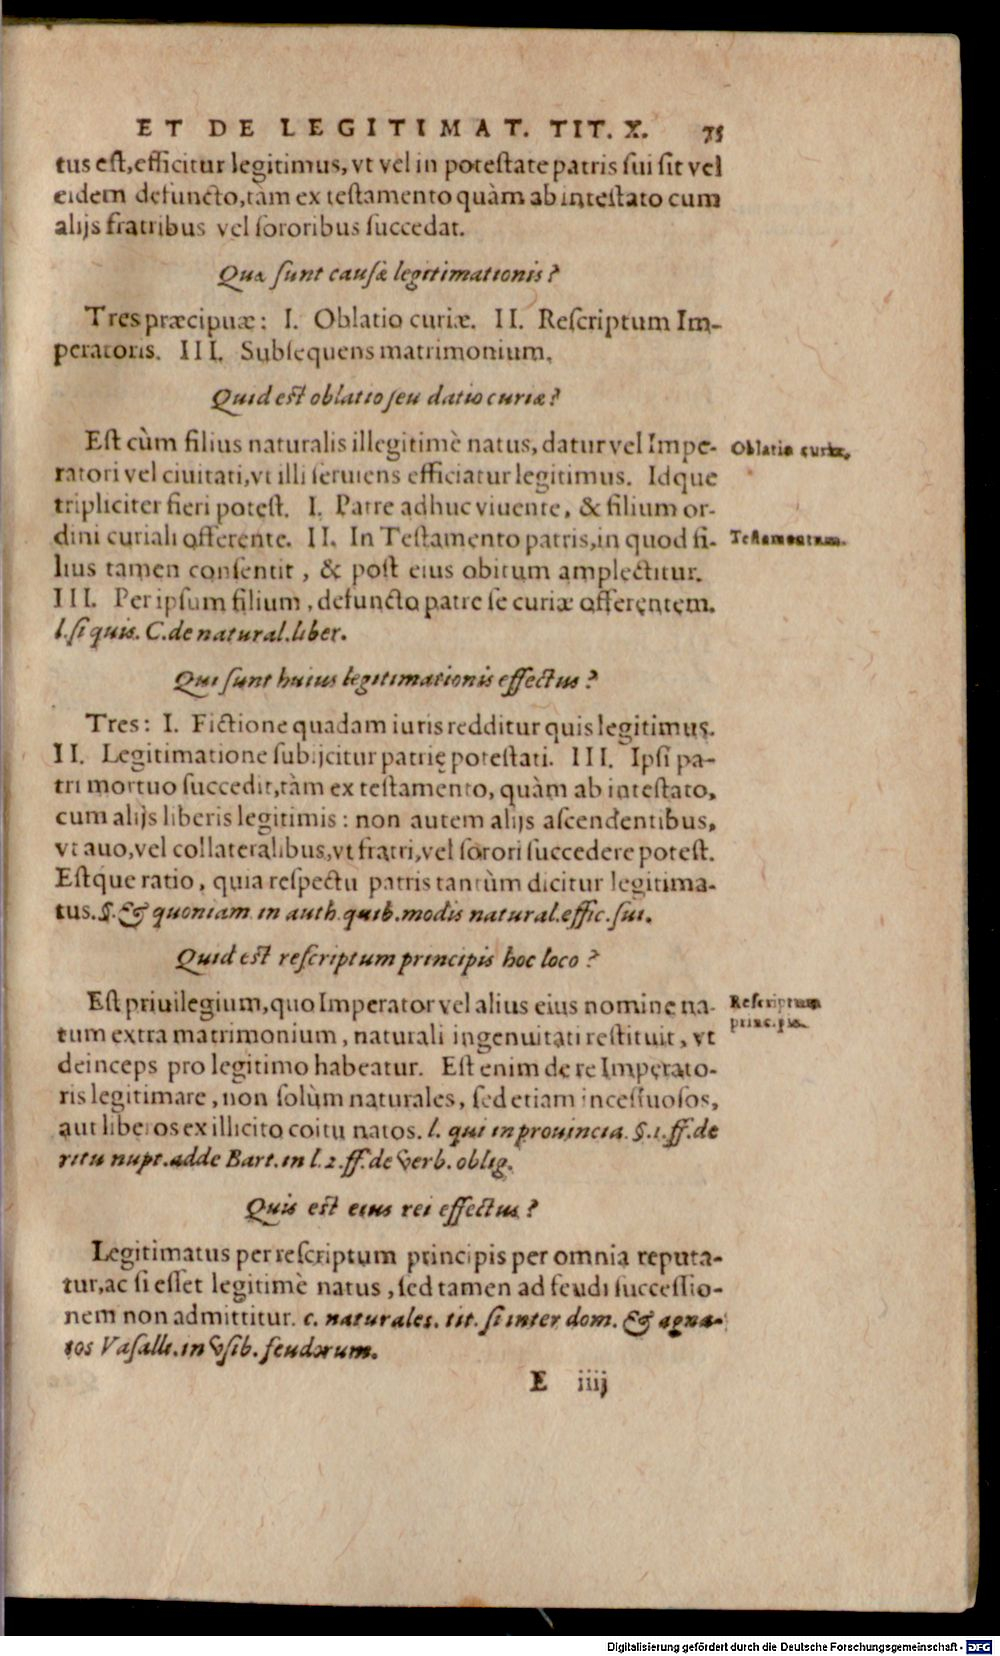 ET DE LEGITIMAT. TIT. X. 75
tus est, efficitur legitimus, vt vel in potestate patris sui sit vel
eidem defuncto, tàm ex testamento quàm ab intestato cum
alijs fratribus vel sororibus succedat.
Quæ sunt causæ legitimationis?
Tres præcipuæ: I. Oblatio curiæ. II. Rescriptum Im-
peratoris. III. Subsequens matrimonium.
Quid est oblatio seu datio curiæ?
Est cùm filius naturalis illegitimè natus, datur vel Impe-
ratori vel ciuitati, vt illi seruiens efficiatur legitimus. Idque
tripliciter fieri potest. I. Patre adhuc viuente, & filium or-
dini curiali offerente. II. In Testamento patris, in quod fi-
lius tamen consentit, & post eius obitum amplectitur.
III. Per ipsum filium, defuncto patre se curiæ offerentem.
l. si quis. C. de natural. liber.
Oblatio curiæ.
Testamentum.
Qui sunt huius legitimationis effectus?
Tres: I. Fictione quadam iuris redditur quis legitimus.
II. Legitimatione subijcitur patrię potestati. III. Ipsi pa-
tri mortuo succedit, tàm ex testamento, quàm ab intestato,
cum alijs liberis legitimis: non autem alijs ascendentibus,
vt auo, vel collateralibus, vt fratri, vel sorori succedere potest.
Estque ratio, quia respectu patris tantùm dicitur legitima-
tus. §. & quoniam in auth. quib. modis natural. effic. sui.
Quid est rescriptum principis hoc loco?
Est priuilegium, quo Imperator vel alius eius nomine na-
tum extra matrimonium, naturali ingenuitati restituit, vt
deinceps pro legitimo habeatur. Est enim de re Imperato-
ris legitimare, non solùm naturales, sed etiam incestuosos,
aut liberos ex illicito coitu natos. l. qui in prouincia. §. 1. ff. de
ritu nupt. adde Bart. in l. 2. ff. de verb. oblig.
Rescriptum
principis.
Quis est eius rei effectus?
Legitimatus per rescriptum principis per omnia reputa-
tur, ac si esset legitimè natus, sed tamen ad feudi successio-
nem non admittitur. c. naturales. tit. si inter dom. & agna-
tos Vasalli. in vsib. feudorum.
E iiij
Digitalisierung gefördert durch die Deutsche Forschungsgemeinschaft - DFG